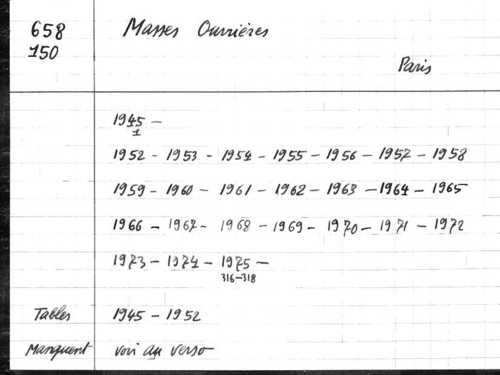 658 Masses Ouvrières
150
Paris
1945 -
1
1952 - 1953 - 1954 - 1955 - 1956 - 1957 - 1958
1959 - 1960 - 1961 - 1962 - 1963 - 1964 - 1965
1966 - 1967 - 1968 - 1969 - 1970 - 1971 - 1972
1973 - 1974 - 1975 -
316-318
Tables 1945 - 1952
Manquent voir au verso